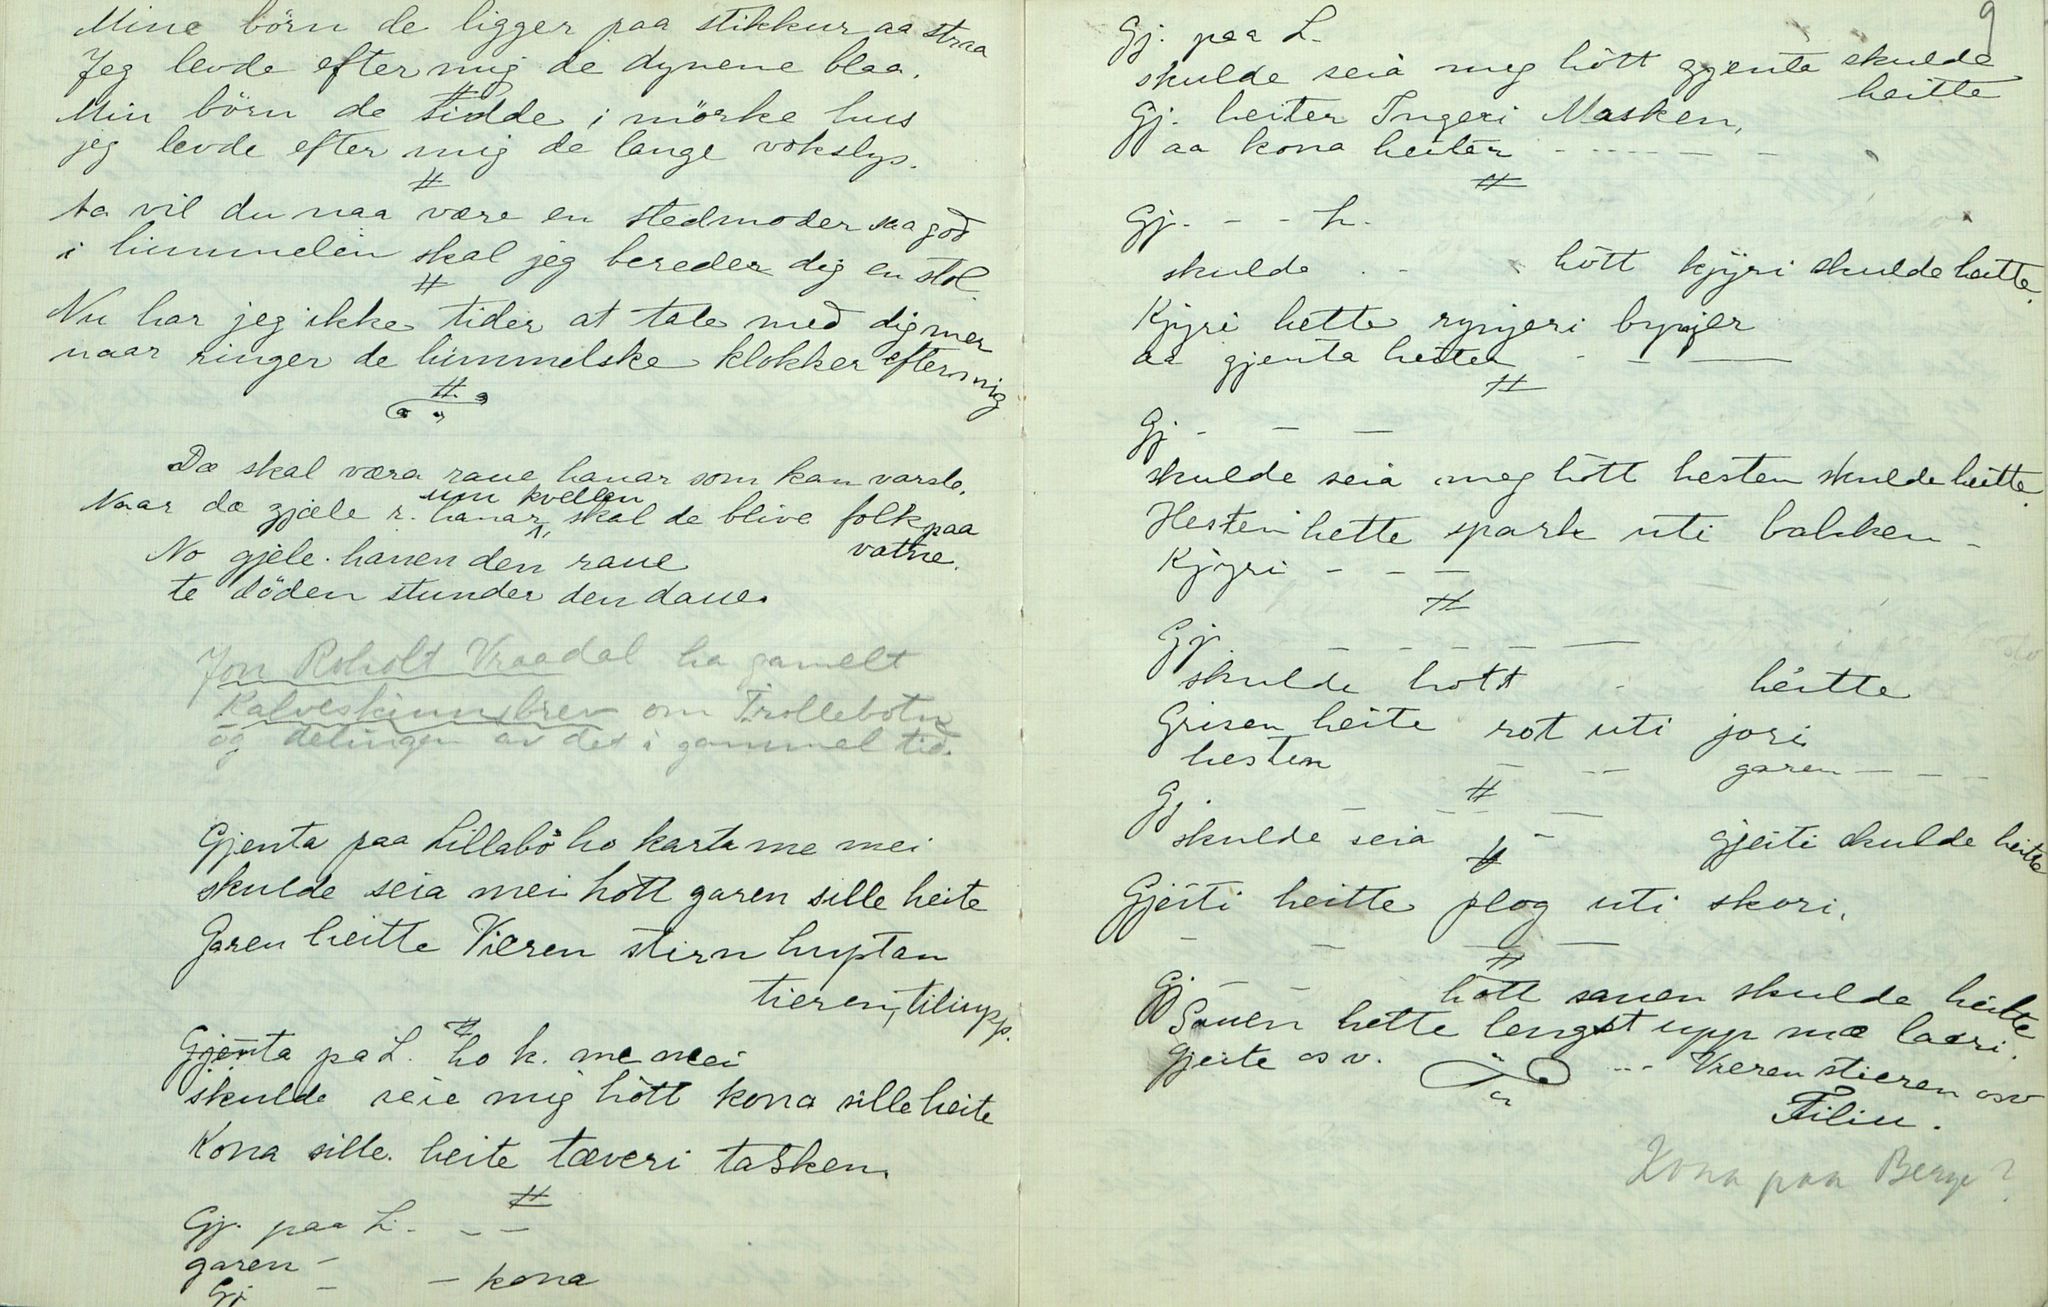 Mine börn de ligger paa stikkur aa straa
Jeg levde efter mig de dynene blaa.
#
Min börn de sidde i mörke hus
jeg levde efter mig de lange vokslys.
#
ta vil du naa være en stedmoder saa god
i himmelen skal jeg bereder dig en stol
#
Nu har jeg ikke tider at tale med dig mer
naar ringer de himmelske klokker efter mig
#
Dæ skal væra raue hanar som kan varsle.
Naar dæ gjæle r. hanar um kvellen skal de blive folk paa vatne.
No gjele hanen den raue
te döden stunder den daue.
Jon Roholt Vraadal ha gamelt
Kalveskinnsbrev om Trollebotn
og delingen av det i gammel tid.
Gjenta paa Lillabö ho karta me mei
skulde seia mei hött garen sille heite
Garen heitte Vieren stirn huptan
tieren, tiliupp.
#
Gjenta pa L. ho k. me mei
skulde seie mig hött kona sille heite
Kona sille heite tæveri tasken.
#
Gj. paa L. - -
garen -
Gj - - kona
9
Gj. paa L.
skulde seia meg hött gjenta skulde heitte
Gj. heiter Ingeri Masken,
aa kona heiter - - - - - -
#
Gj. - - h.
skulde . - hött kjyri skulde heitte.
Kjyri hette rynjeri bynjer
aa gjenta heiter - - -
#
Gj - - -
skulde seia meg hött hesten skulde heitte.
Hesten hette spark uti bakken -
Kjyri - - -
#
Gj. - - - - -
skulde hott - heitte
Grisen heite rot uti jori
hesten - - garen - - -
#
Gj. - - -
skulde seia - gjeiti skulde heitte
#
Gjeiti heitte plog uti skori.
- - - -
#
Gj - - hött sauen skulde heitte
Sauen hette lengst upp mæ laari.
Gjeite osv. --- Vieren stieren osv
Filiu.
Kona paa Berge?